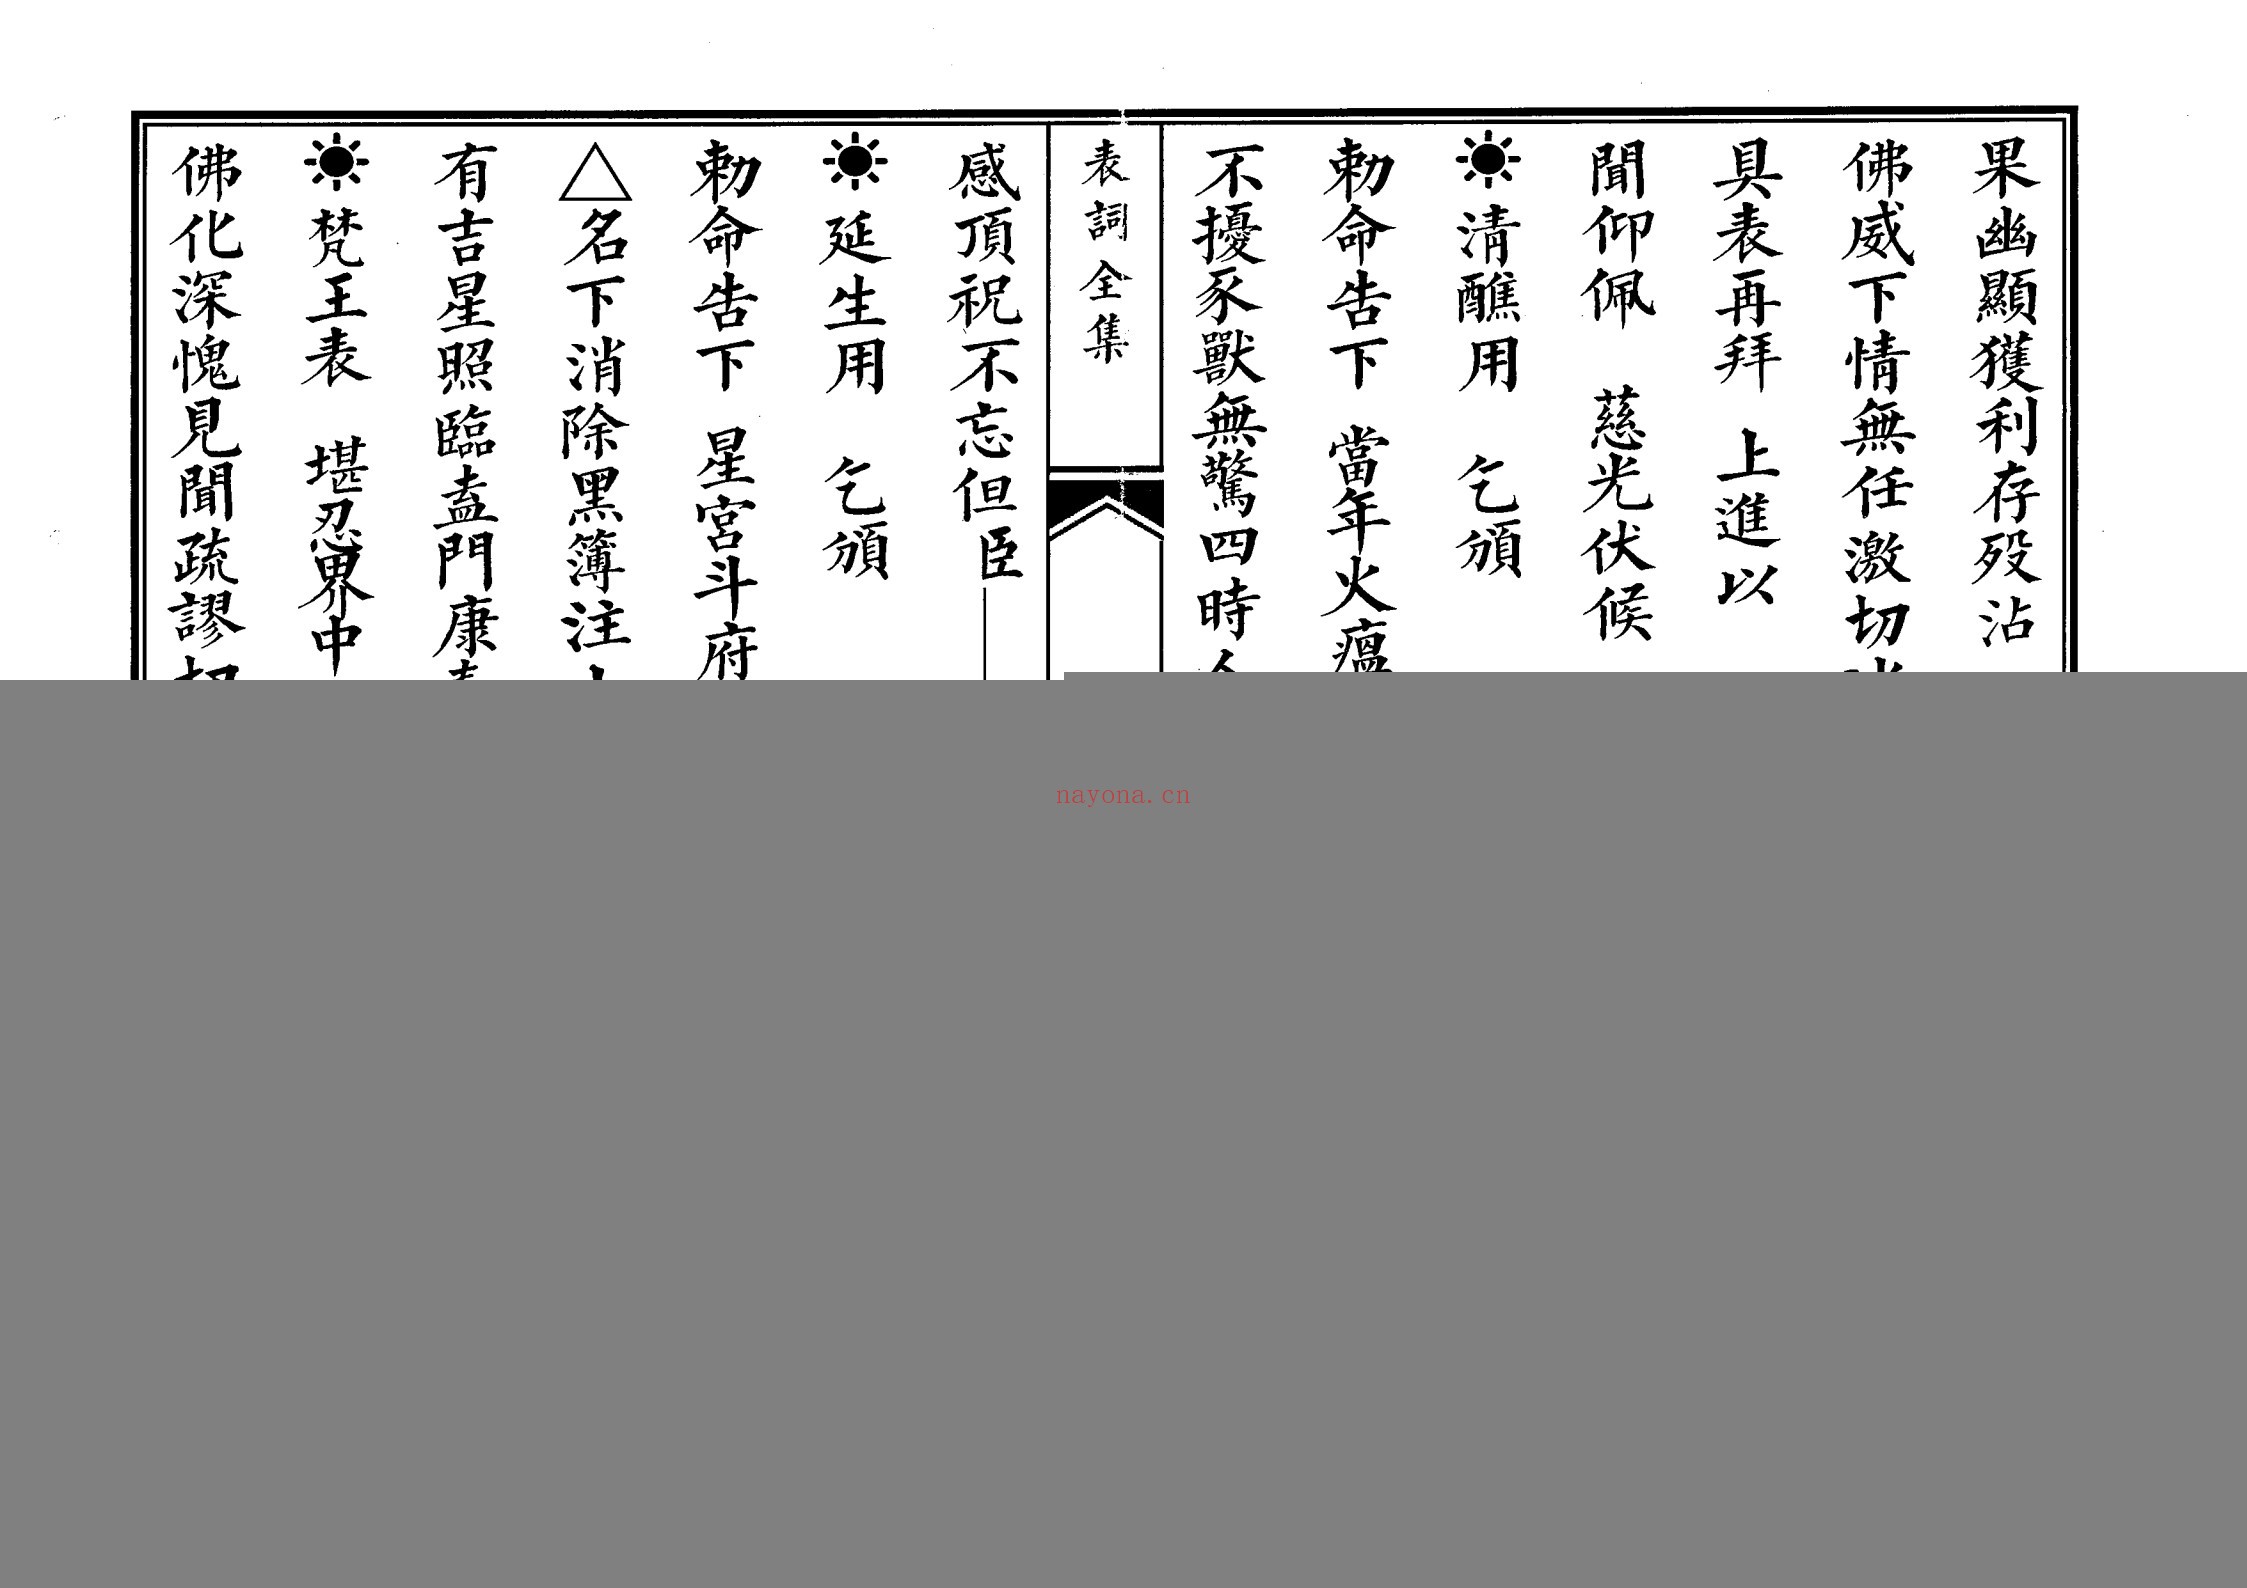 果幽顯獲利存歿沾
佛威下情無任激切
具表再拜 上進以
聞仰佩 慈光伏候
清醮用 乞頒
勅命告下 當年火瘟
不擾豕獸無驚四時
表詞全集
感頂祝不忘但臣
延生用 乞頒
勅命告下 星宮斗府
△名下消除黑簿注
有吉星照臨盍門康
梵王表 堪忍界中
佛化深愧見聞疏謬
nayona.cn